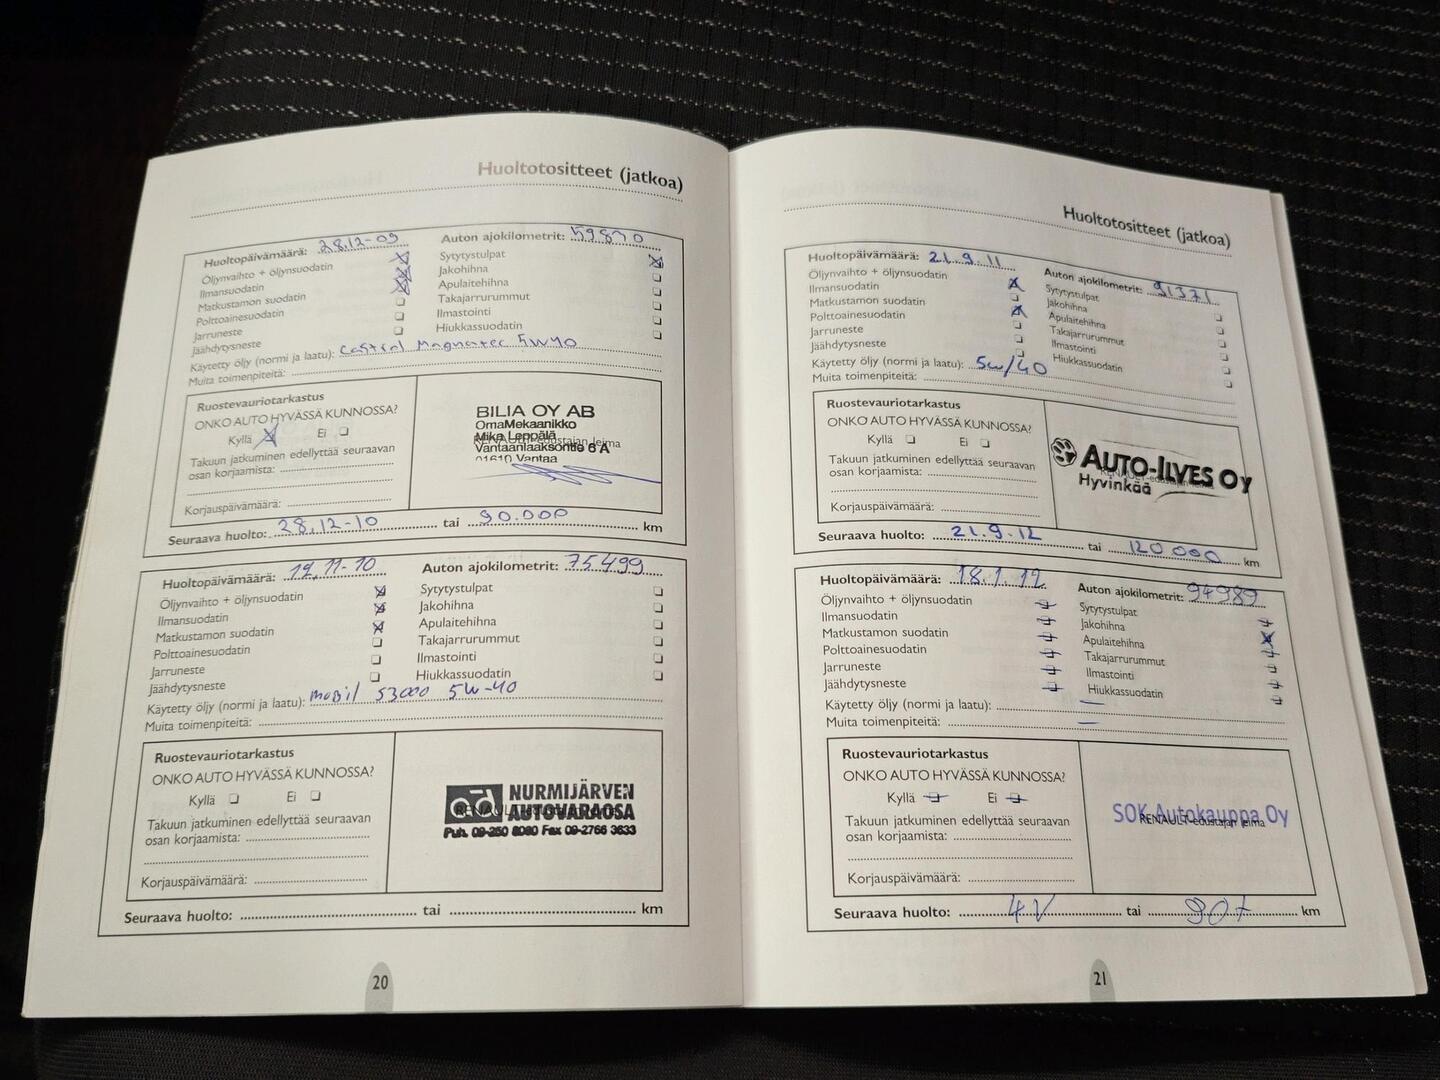 Huoltotositteet (jatkoa)
Huoltopäivämäärä: 28.12-09 Auton ajokilometrit: 59870
Öljynvaihto + öljynsuodatin Sytytystulpat
Ilmansuodatin Jakohihna
Matkustamon suodatin Apulaitehihna
Polttoainesuodatin Takajarrurummut
Jarruneste Ilmastointi
Jäähdytysneste Hiukkassuodatin
Käytetty öljy (normi ja laatu): Castrol Magnatec 5W40
Muita toimenpiteitä:
Ruostevauriotarkastus
ONKO AUTO HYVÄSSÄ KUNNOSSA?
Kyllä Ei
Takuun jatkuminen edellyttää seuraavan
osan korjaamista:
Korjauspäivämäärä:
BILIA OY AB
OmaMekaanikko
Mika Leppälä
RENAULT-edustajan leima
Vantaanlaaksontie 6 A
01610 Vantaa
Seuraava huolto: 28.12-10 tai 90.000 km
Huoltopäivämäärä: 19.11-10 Auton ajokilometrit: 75499
Öljynvaihto + öljynsuodatin Sytytystulpat
Ilmansuodatin Jakohihna
Matkustamon suodatin Apulaitehihna
Polttoainesuodatin Takajarrurummut
Jarruneste Ilmastointi
Jäähdytysneste Hiukkassuodatin
Käytetty öljy (normi ja laatu): mobil S3000 5W-40
Muita toimenpiteitä:
Ruostevauriotarkastus
ONKO AUTO HYVÄSSÄ KUNNOSSA?
Kyllä Ei
Takuun jatkuminen edellyttää seuraavan
osan korjaamista:
Korjauspäivämäärä:
NURMIJÄRVEN
AUTOVARAOSA
Puh. 09-250 8080 Fax 09-2766 3633
Seuraava huolto: tai km
20
Huoltotositteet (jatkoa)
Huoltopäivämäärä: 21.9.11 Auton ajokilometrit: 91371
Öljynvaihto + öljynsuodatin Sytytystulpat
Ilmansuodatin Jakohihna
Matkustamon suodatin Apulaitehihna
Polttoainesuodatin Takajarrurummut
Jarruneste Ilmastointi
Jäähdytysneste Hiukkassuodatin
Käytetty öljy (normi ja laatu): 5w/40
Muita toimenpiteitä:
Ruostevauriotarkastus
ONKO AUTO HYVÄSSÄ KUNNOSSA?
Kyllä Ei
Takuun jatkuminen edellyttää seuraavan
osan korjaamista:
Korjauspäivämäärä:
AUTO-ILVES Oy
RENAULT-edustajan leima
Hyvinkää
Seuraava huolto: 21.9.12 tai 120 000 km
Huoltopäivämäärä: 18.1.12 Auton ajokilometrit: 94989
Öljynvaihto + öljynsuodatin Sytytystulpat
Ilmansuodatin Jakohihna
Matkustamon suodatin Apulaitehihna
Polttoainesuodatin Takajarrurummut
Jarruneste Ilmastointi
Jäähdytysneste Hiukkassuodatin
Käytetty öljy (normi ja laatu): —
Muita toimenpiteitä: —
Ruostevauriotarkastus
ONKO AUTO HYVÄSSÄ KUNNOSSA?
Kyllä Ei
Takuun jatkuminen edellyttää seuraavan
osan korjaamista:
Korjauspäivämäärä:
SOK Autokauppa Oy
RENAULT-edustajan leima
Seuraava huolto: 4V tai 90t km
21